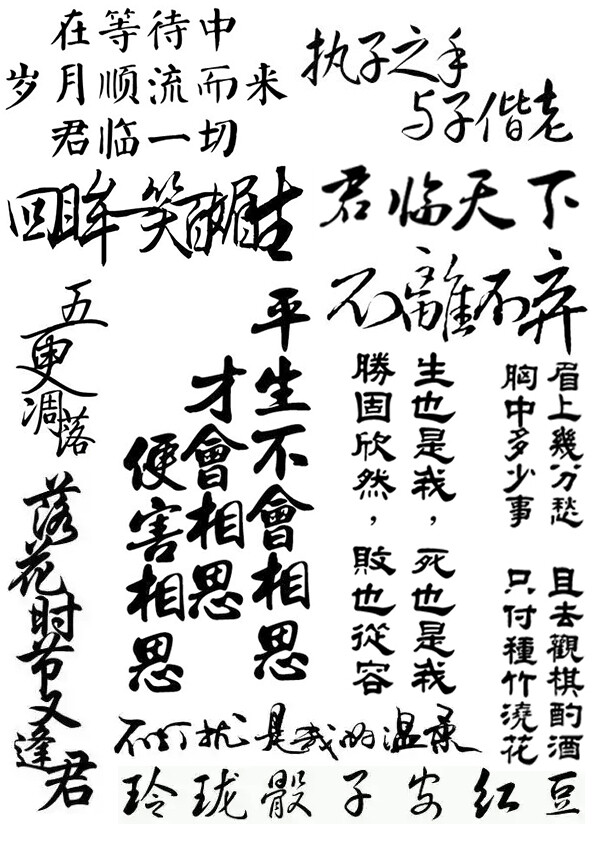 在等待中
岁月顺流而来
君临一切
执子之手
与子偕老
回眸一笑百媚生
君临天下
不離不弃
五更凋落
平生不會相思
才會相思
便害相思
生也是我，死也是我
勝固欣然，敗也從容
眉上幾分愁 且去觀棋酌酒
胸中多少事 只付種竹澆花
落花时节又逢君
不打扰是我的温柔
玲珑骰子安红豆